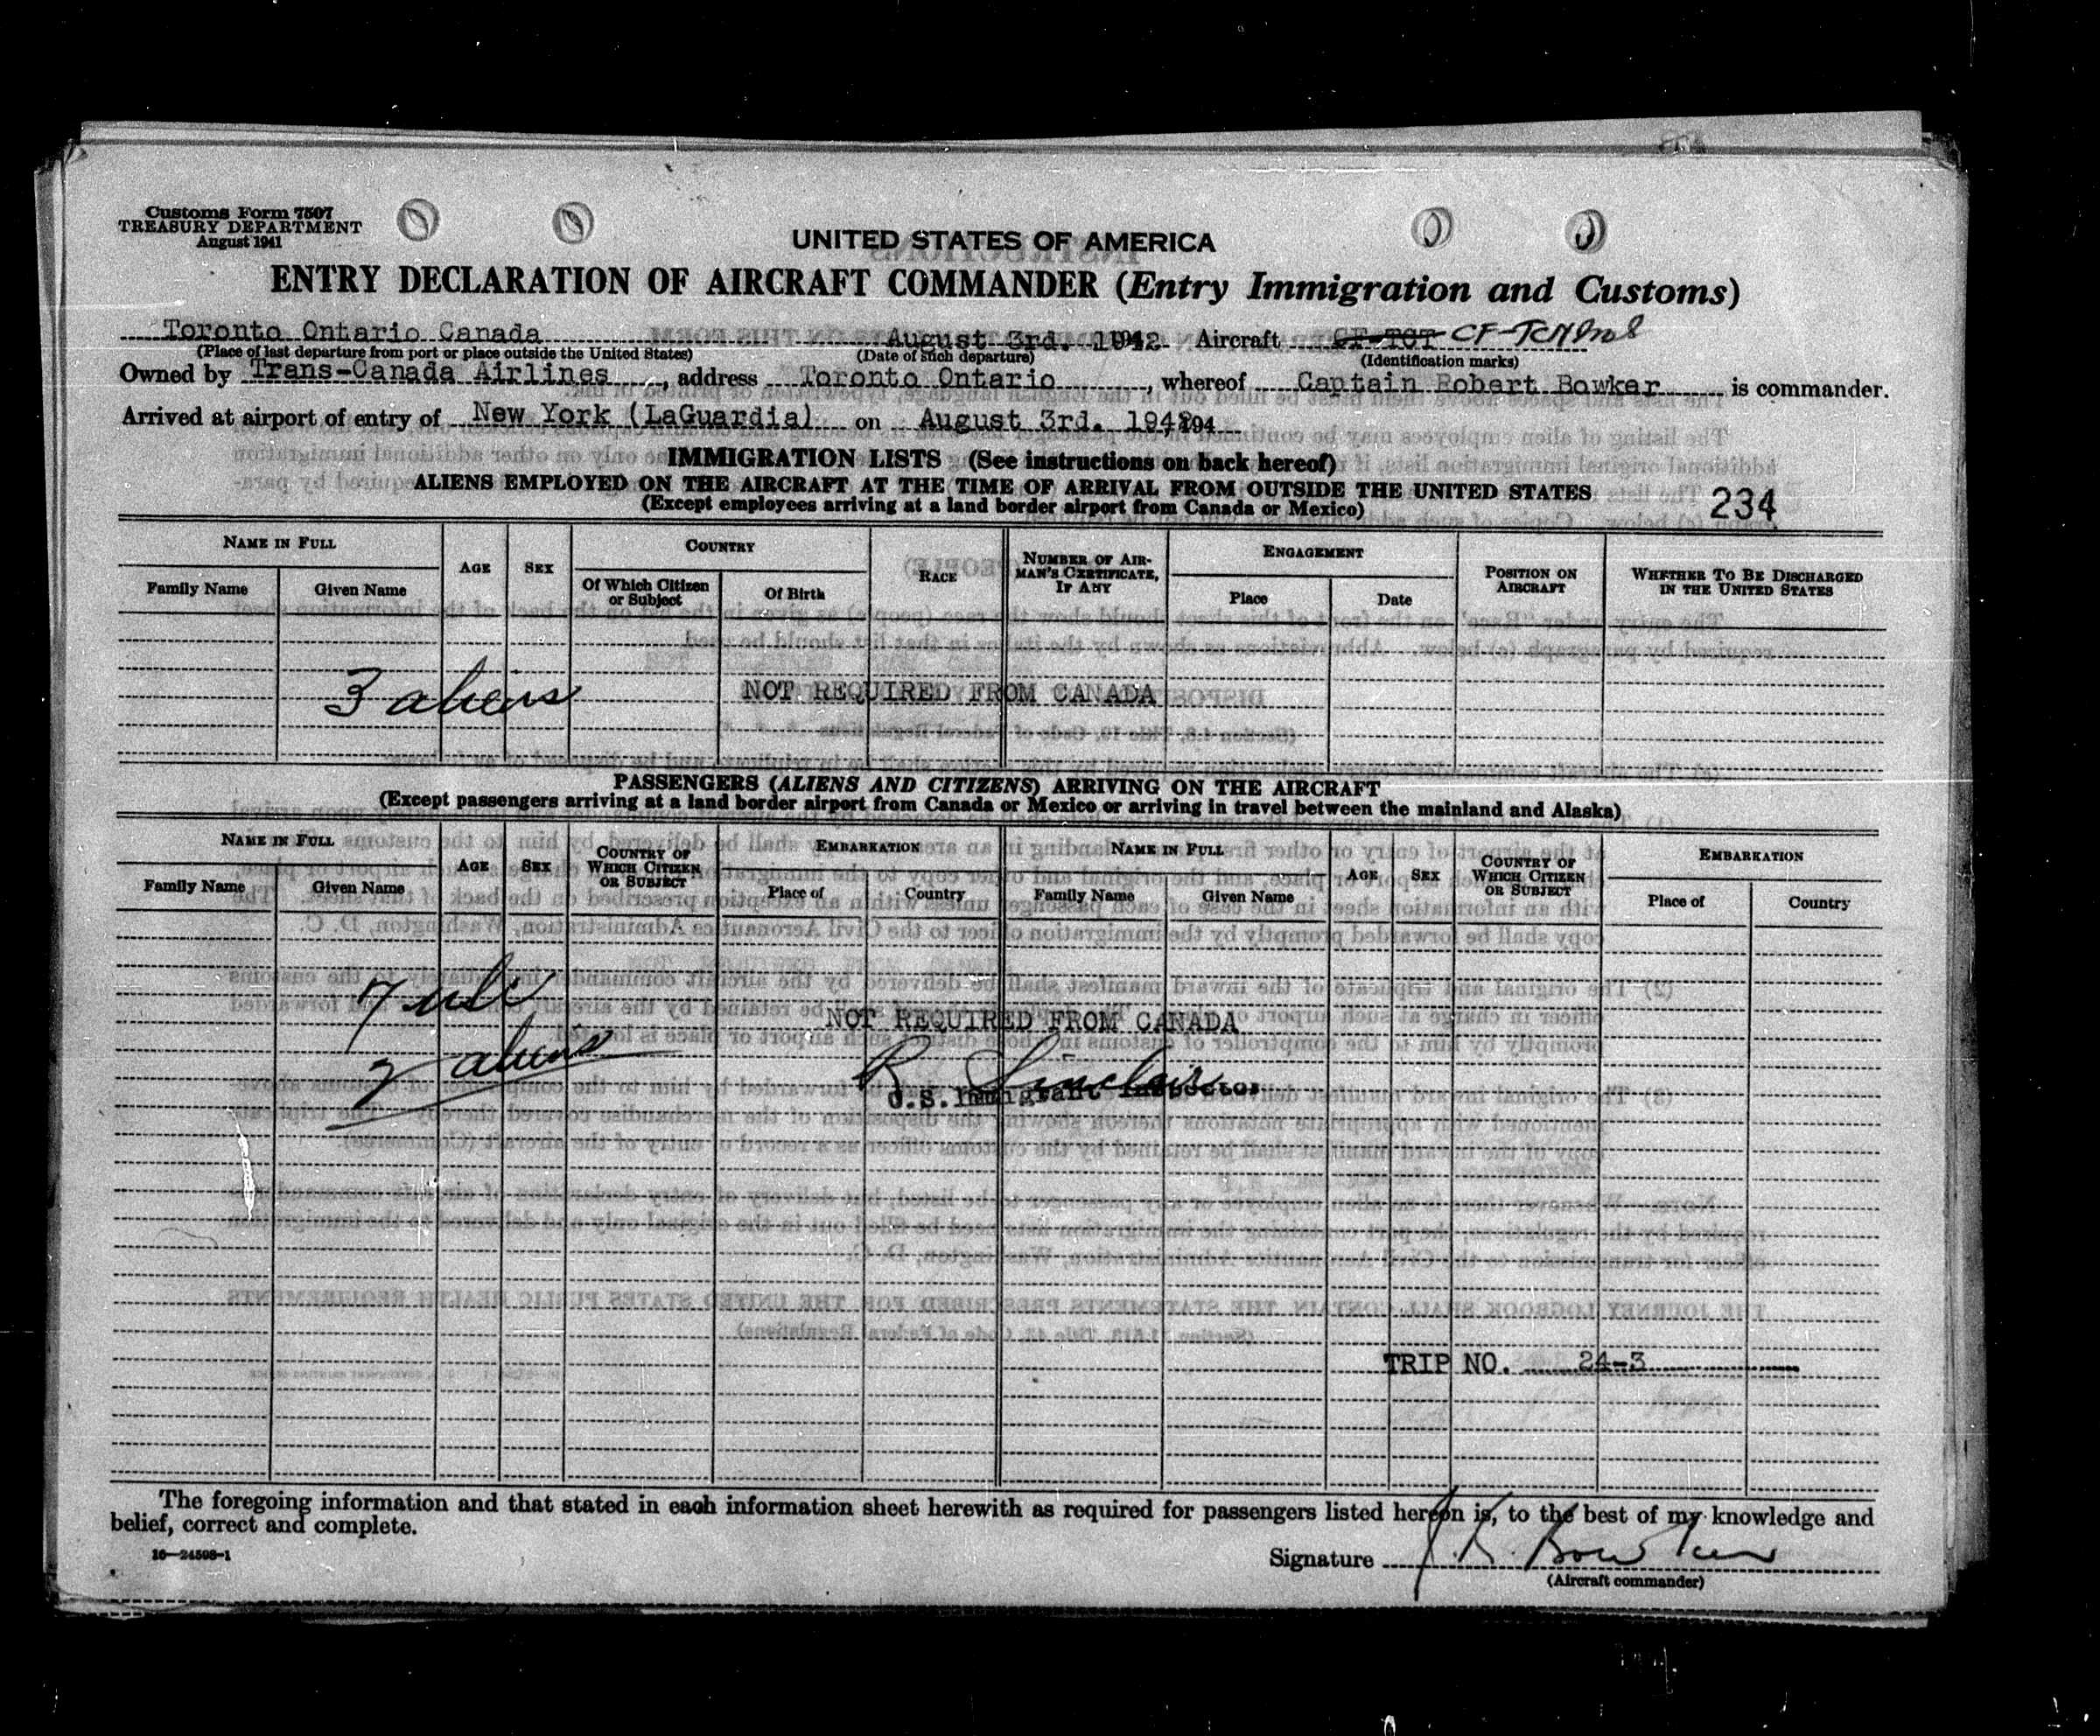 Customs Form 7507
TREASURY DEPARTMENT
August 1941
UNITED STATES OF AMERICA
ENTRY DECLARATION OF AIRCRAFT COMMANDER (Entry Immigration and Customs)
Toronto Ontario Canada August 3rd. 1942 Aircraft CF-TCT CF-TCN
(Place of last departure from port or place outside the United States) (Date of such departure) (Identification marks)
Owned by Trans-Canada Airlines, address Toronto Ontario, whereof Captain Robert Bowker is commander.
Arrived at airport of entry of New York (LaGuardia) on August 3rd. 1942, 194
IMMIGRATION LISTS (See instructions on back hereof)
ALIENS EMPLOYED ON THE AIRCRAFT AT THE TIME OF ARRIVAL FROM OUTSIDE THE UNITED STATES
(Except employees arriving at a land border airport from Canada or Mexico)
234
NAME IN FULL AGE SEX COUNTRY RACE NUMBER OF AIRMAN'S CERTIFICATE, IF ANY ENGAGEMENT POSITION ON AIRCRAFT WHETHER TO BE DISCHARGED IN THE UNITED STATES
Family Name Given Name Of Which Citizen or Subject Of Birth Place Date
3 aliens NOT REQUIRED FROM CANADA
PASSENGERS (ALIENS AND CITIZENS) ARRIVING ON THE AIRCRAFT
(Except passengers arriving at a land border airport from Canada or Mexico or arriving in travel between the mainland and Alaska)
NAME IN FULL AGE SEX COUNTRY OF WHICH CITIZEN OR SUBJECT EMBARKATION NAME IN FULL AGE SEX COUNTRY OF WHICH CITIZEN OR SUBJECT EMBARKATION
Family Name Given Name Place of Country Family Name Given Name Place of Country
7 USC
NOT REQUIRED FROM CANADA
2 aliens
R Sinclair
U.S. Immigrant Inspector
TRIP NO. 24-3
The foregoing information and that stated in each information sheet herewith as required for passengers listed hereon is, to the best of my knowledge and
belief, correct and complete.
16—24598-1
Signature R. Bowker
(Aircraft commander)